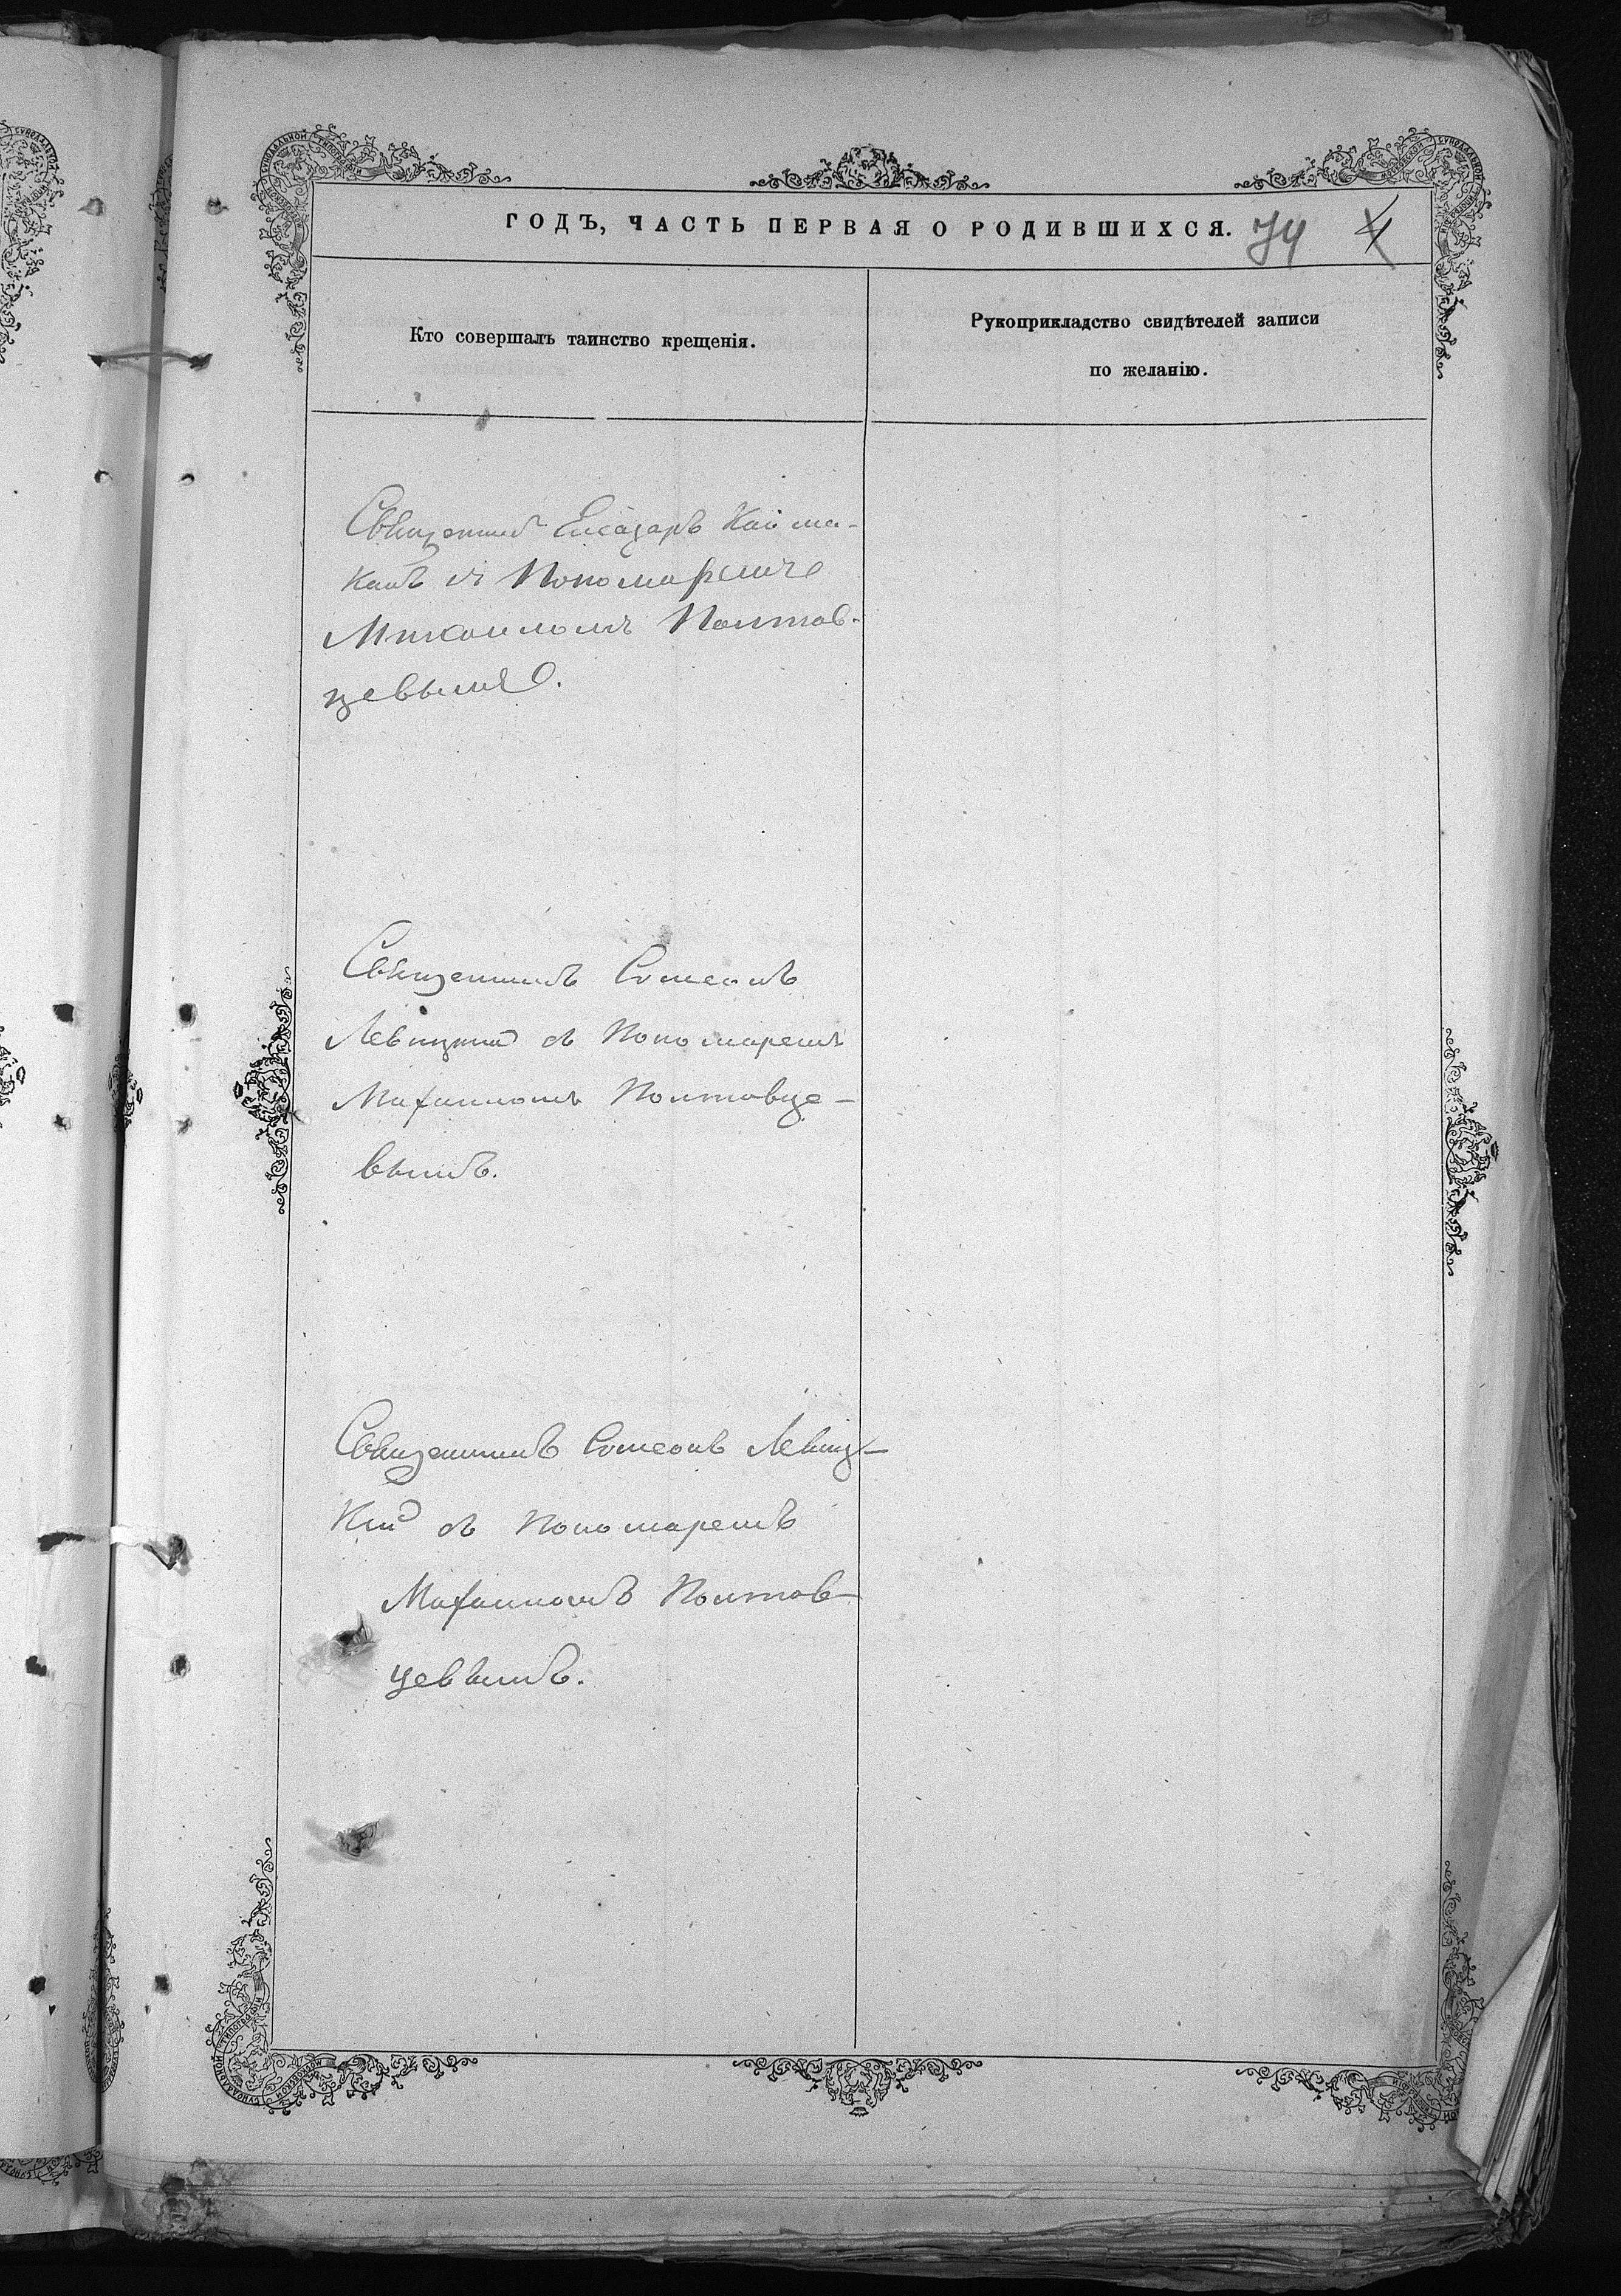 ГОДЪ, ЧАСТЬ ПЕРВАЯ О РОДИВШИХСЯ. 74 4
Кто совершалъ таинство крещенія.
Рукоприкладство свидѣтелей записи
по желанію.
Священникъ Елеазаръ Кайма-
канъ съ Пономаремъ
Михаиломъ Полтав-
цевымъ.
Священникъ Симеонъ
Левицкій съ Пономаремъ
Михаиломъ Полтавце-
вымъ.
Священникъ Симеонъ Левиц-
кій съ Пономаремъ
Михаиломъ Полтав-
цевымъ.